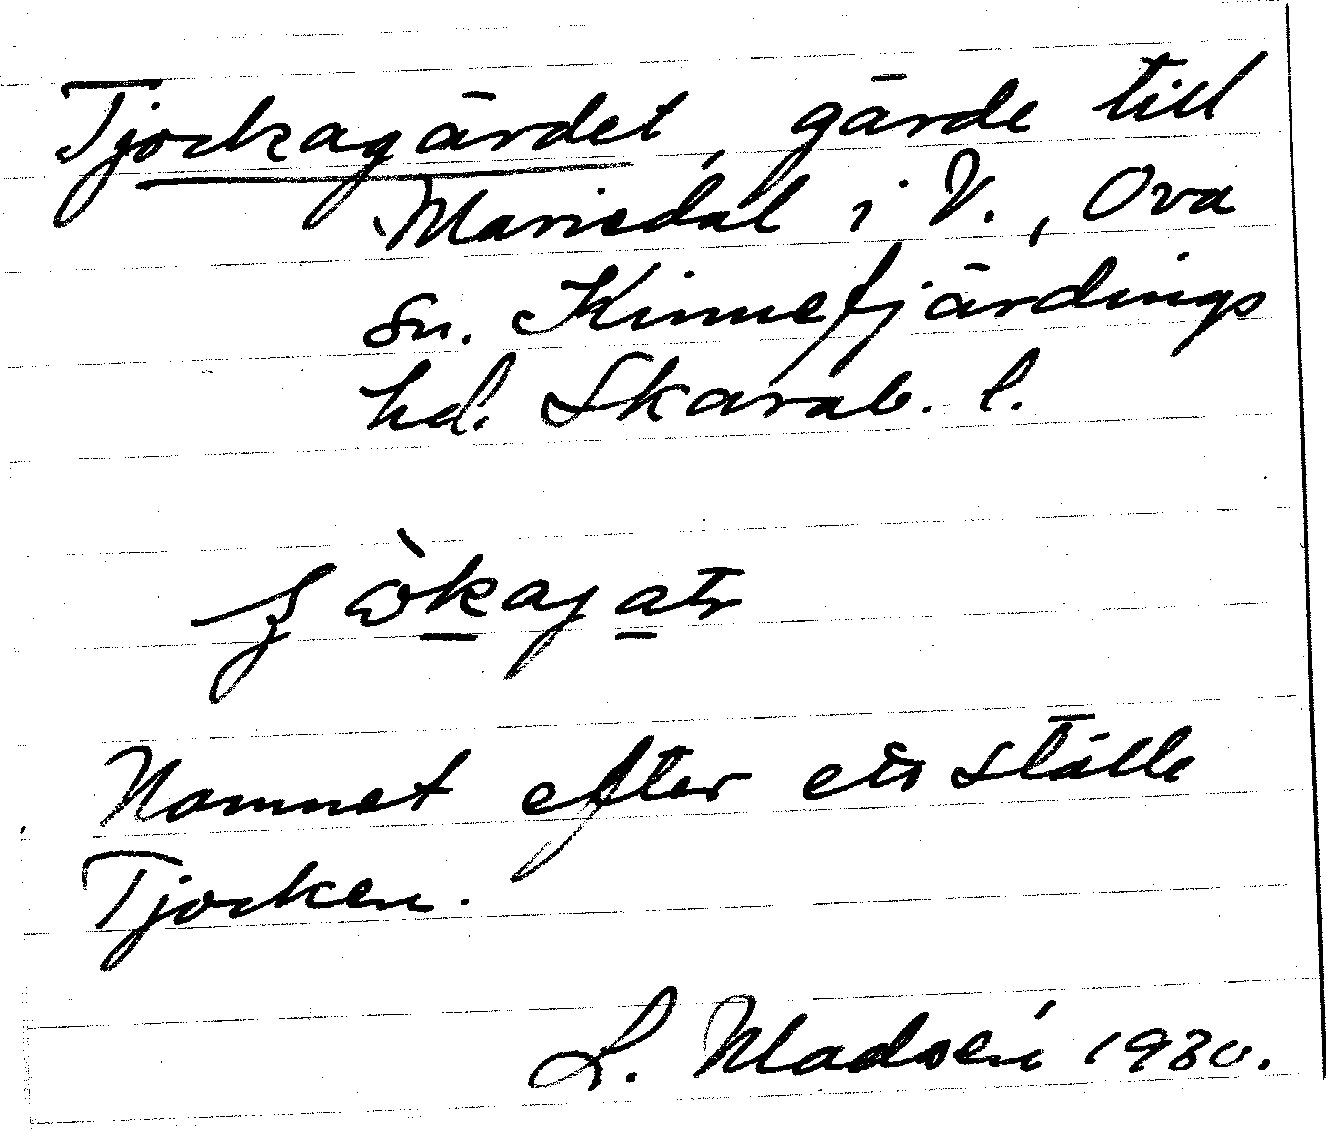 Tjockagärdet, gärde till
Mariedal i V., Ova
sn. Kinnefjärdings
hd. Skarab. l.
Namnet efter ett ställe
Tjocken.
L. Madsén 1930.